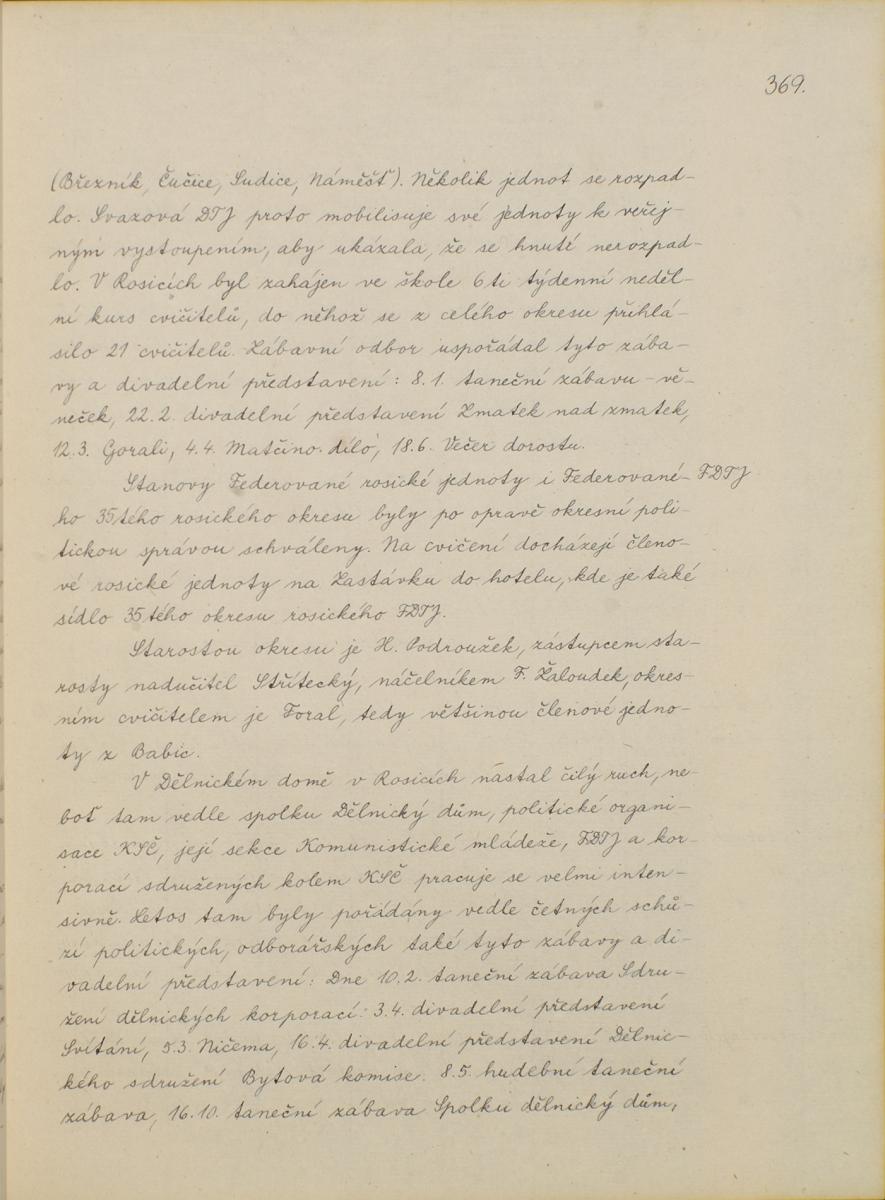 369.
(Březník, Čučice, Sudice, Náměšť). Několik jednot se rozpad-
lo. Svazová DTJ proto mobilisuje své jednoty k veřej-
ným vystoupením, aby ukázala, že se hnutí nerozpad-
lo. V Rosicích byl zahájen ve škole 6ti týdenní neděl-
ní kurs cvičitelů, do něhož se z celého okresu přihlá-
silo 21 cvičitelů. Zábavní odbor uspořádal tyto zába-
vy a divadelní představení: 8.1. taneční zábavu - vě-
neček, 22.2. divadelní představení Zmatek nad zmatek,
12.3. Gorali, 4.4. Matčino dílo, 18.6. Večer dorostu.
Stanovy Federované rosické jednoty i Federované- FDTJ
ho 35tého rosického okresu byly po opravě okresní poli-
tickou správou schváleny. Na cvičení docházejí členo-
vé rosické jednoty na Zastávku do hotelu, kde je také
sídlo 35tého okresu rosického FDTJ.
Starostou okresu je H. Podroužek, zástupcem sta-
rosty nadučitel Střítecký, náčelníkem F. Žaloudek, okres-
ním cvičitelem je Foral, tedy většinou členové jedno-
ty z Babic.
V Dělnickém domě v Rosicích nastal čilý ruch, ne-
boť tam vedle spolku Dělnický dům, politické organi-
sace KSČ, její sekce Komunistické mládeže, FDTJ a kor-
porací sdružených kolem KSČ pracuje se velmi inten-
sivně. Letos tam byly pořádány vedle četných schů-
zí politických, odborářských také tyto zábavy a di-
vadelní představení: Dne 10.2. taneční zábava Sdru-
žení dělnických korporací. 3.4. divadelní představení
Svítání, 5.3. Ničema, 16.4. divadelní představení Dělnic-
kého sdružení Bytová komise. 8.5. hudební taneční
zábava, 16.10. taneční zábava Spolku dělnický dům,